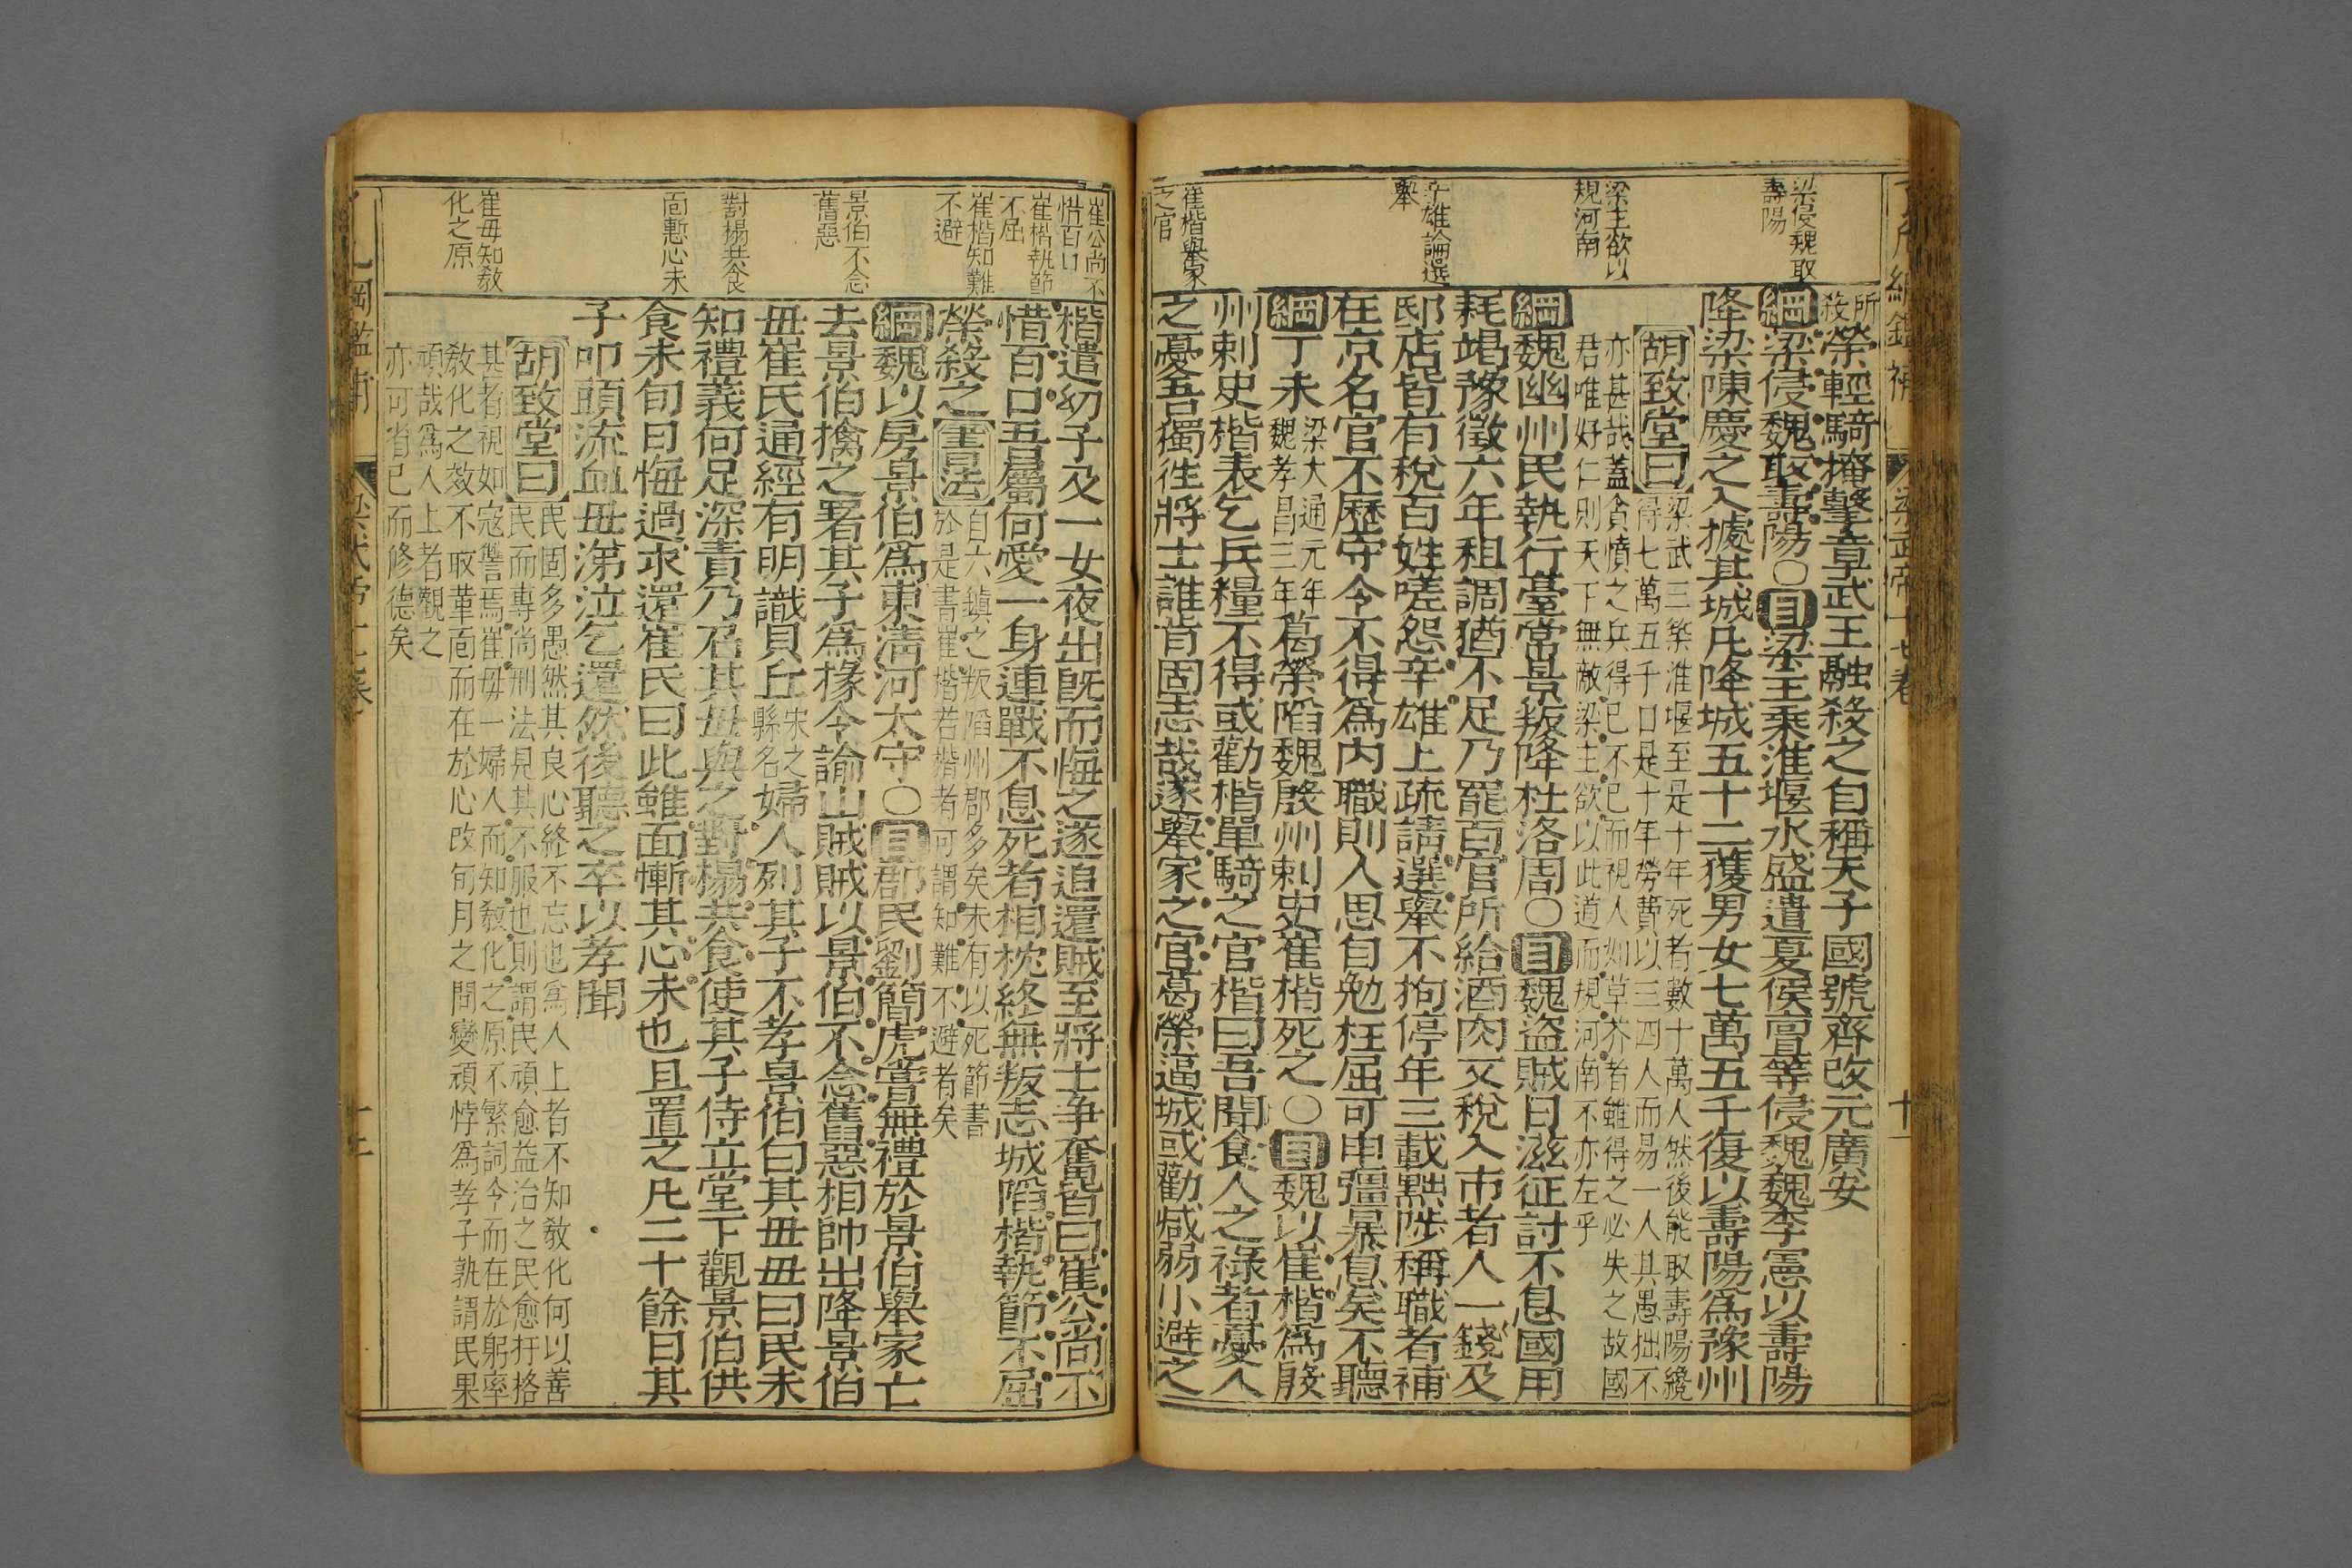 梁侵魏取
壽陽
梁主欲以
規河南
辛雄論選
舉
崔楷舉家
之官
所
殺
榮輕騎掩擊章武王融殺之自稱天子國號齊改元廣安
綱梁侵魏取壽陽〇目梁主乘淮堰水盛遣夏侯亶等侵魏魏李憲以壽陽
降梁陳慶之入據其城凡降城五十二獲男女七萬五千復以壽陽爲豫州
胡致堂曰
梁武三築淮堰至是十年死者數十萬人然後能取壽陽纔
得七萬五千口是十年勞費以三四人而易一人其愚拙不
亦甚哉蓋貪憤之兵得已不已而視人如草芥者雖得之必失之故國
君唯好仁則天下無敵梁主欲以此道而規河南不亦左乎
綱魏幽州民執行臺常景叛降杜洛周〇目魏盜賊日滋征討不息國用
耗竭豫徵六年租調猶不足乃罷百官所給酒肉又稅入市者人一錢及
邸店皆有稅百姓嗟怨辛雄上疏請選舉不拘停年三載黜陟稱職者補
在京名官不歷守令不得爲內職則人思自勉枉屈可申彊暴息矣不聽
綱丁未
梁大通元年
魏孝昌三年
葛榮陷魏殷州刺史崔楷死之〇目魏以崔楷爲殷
州刺史楷表乞兵糧不得或勸楷單騎之官楷曰吾聞食人之祿者憂人
之憂吾獨往將士誰肯固志哉遂舉家之官葛榮逼城或勸減弱小避之
崔公尚不
惜百口
崔楷執節
不屈
崔楷知難
不避
景伯不念
舊惡
對榻共食
面慙心未
崔母知教
化之原
楷遣幼子及一女夜出既而悔之遂追還賊至將士爭奮皆曰崔公尚不
惜百口吾屬何愛一身連戰不息死者相枕終無叛志城陷楷執節不屈
榮殺之書法
自六鎮之叛陷州郡多矣未有以死節書
於是書崔楷若楷者可謂知難不避者矣
綱魏以房景伯爲東清河太守〇目郡民劉簡虎嘗無禮於景伯舉家亡
去景伯擒之署其子爲掾令諭山賊賊以景伯不念舊惡相帥出降景伯
母崔氏通經有明識貝丘
宋之
縣名
婦人列其子不孝景伯白其母母曰民未
知禮義何足深責乃召其母與之對榻共食使其子侍立堂下觀景伯供
食未旬日悔過求還崔氏曰此雖面慚其心未也且置之凡二十餘日其
子叩頭流血母涕泣乞還然後聽之卒以孝聞
胡致堂曰
民固多愚然其良心終不忘也爲人上者不知教化何以善
民而專尚刑法見其不服也則謂民頑愈益治之民愈扞格
甚者視如寇讐焉崔母一婦人而知教化之原不繁詞令而在於躬率
教化之效不取革面而在於心改旬月之間變頑悖爲孝子孰謂民果
頑哉爲人上者觀之
亦可省己而修德矣